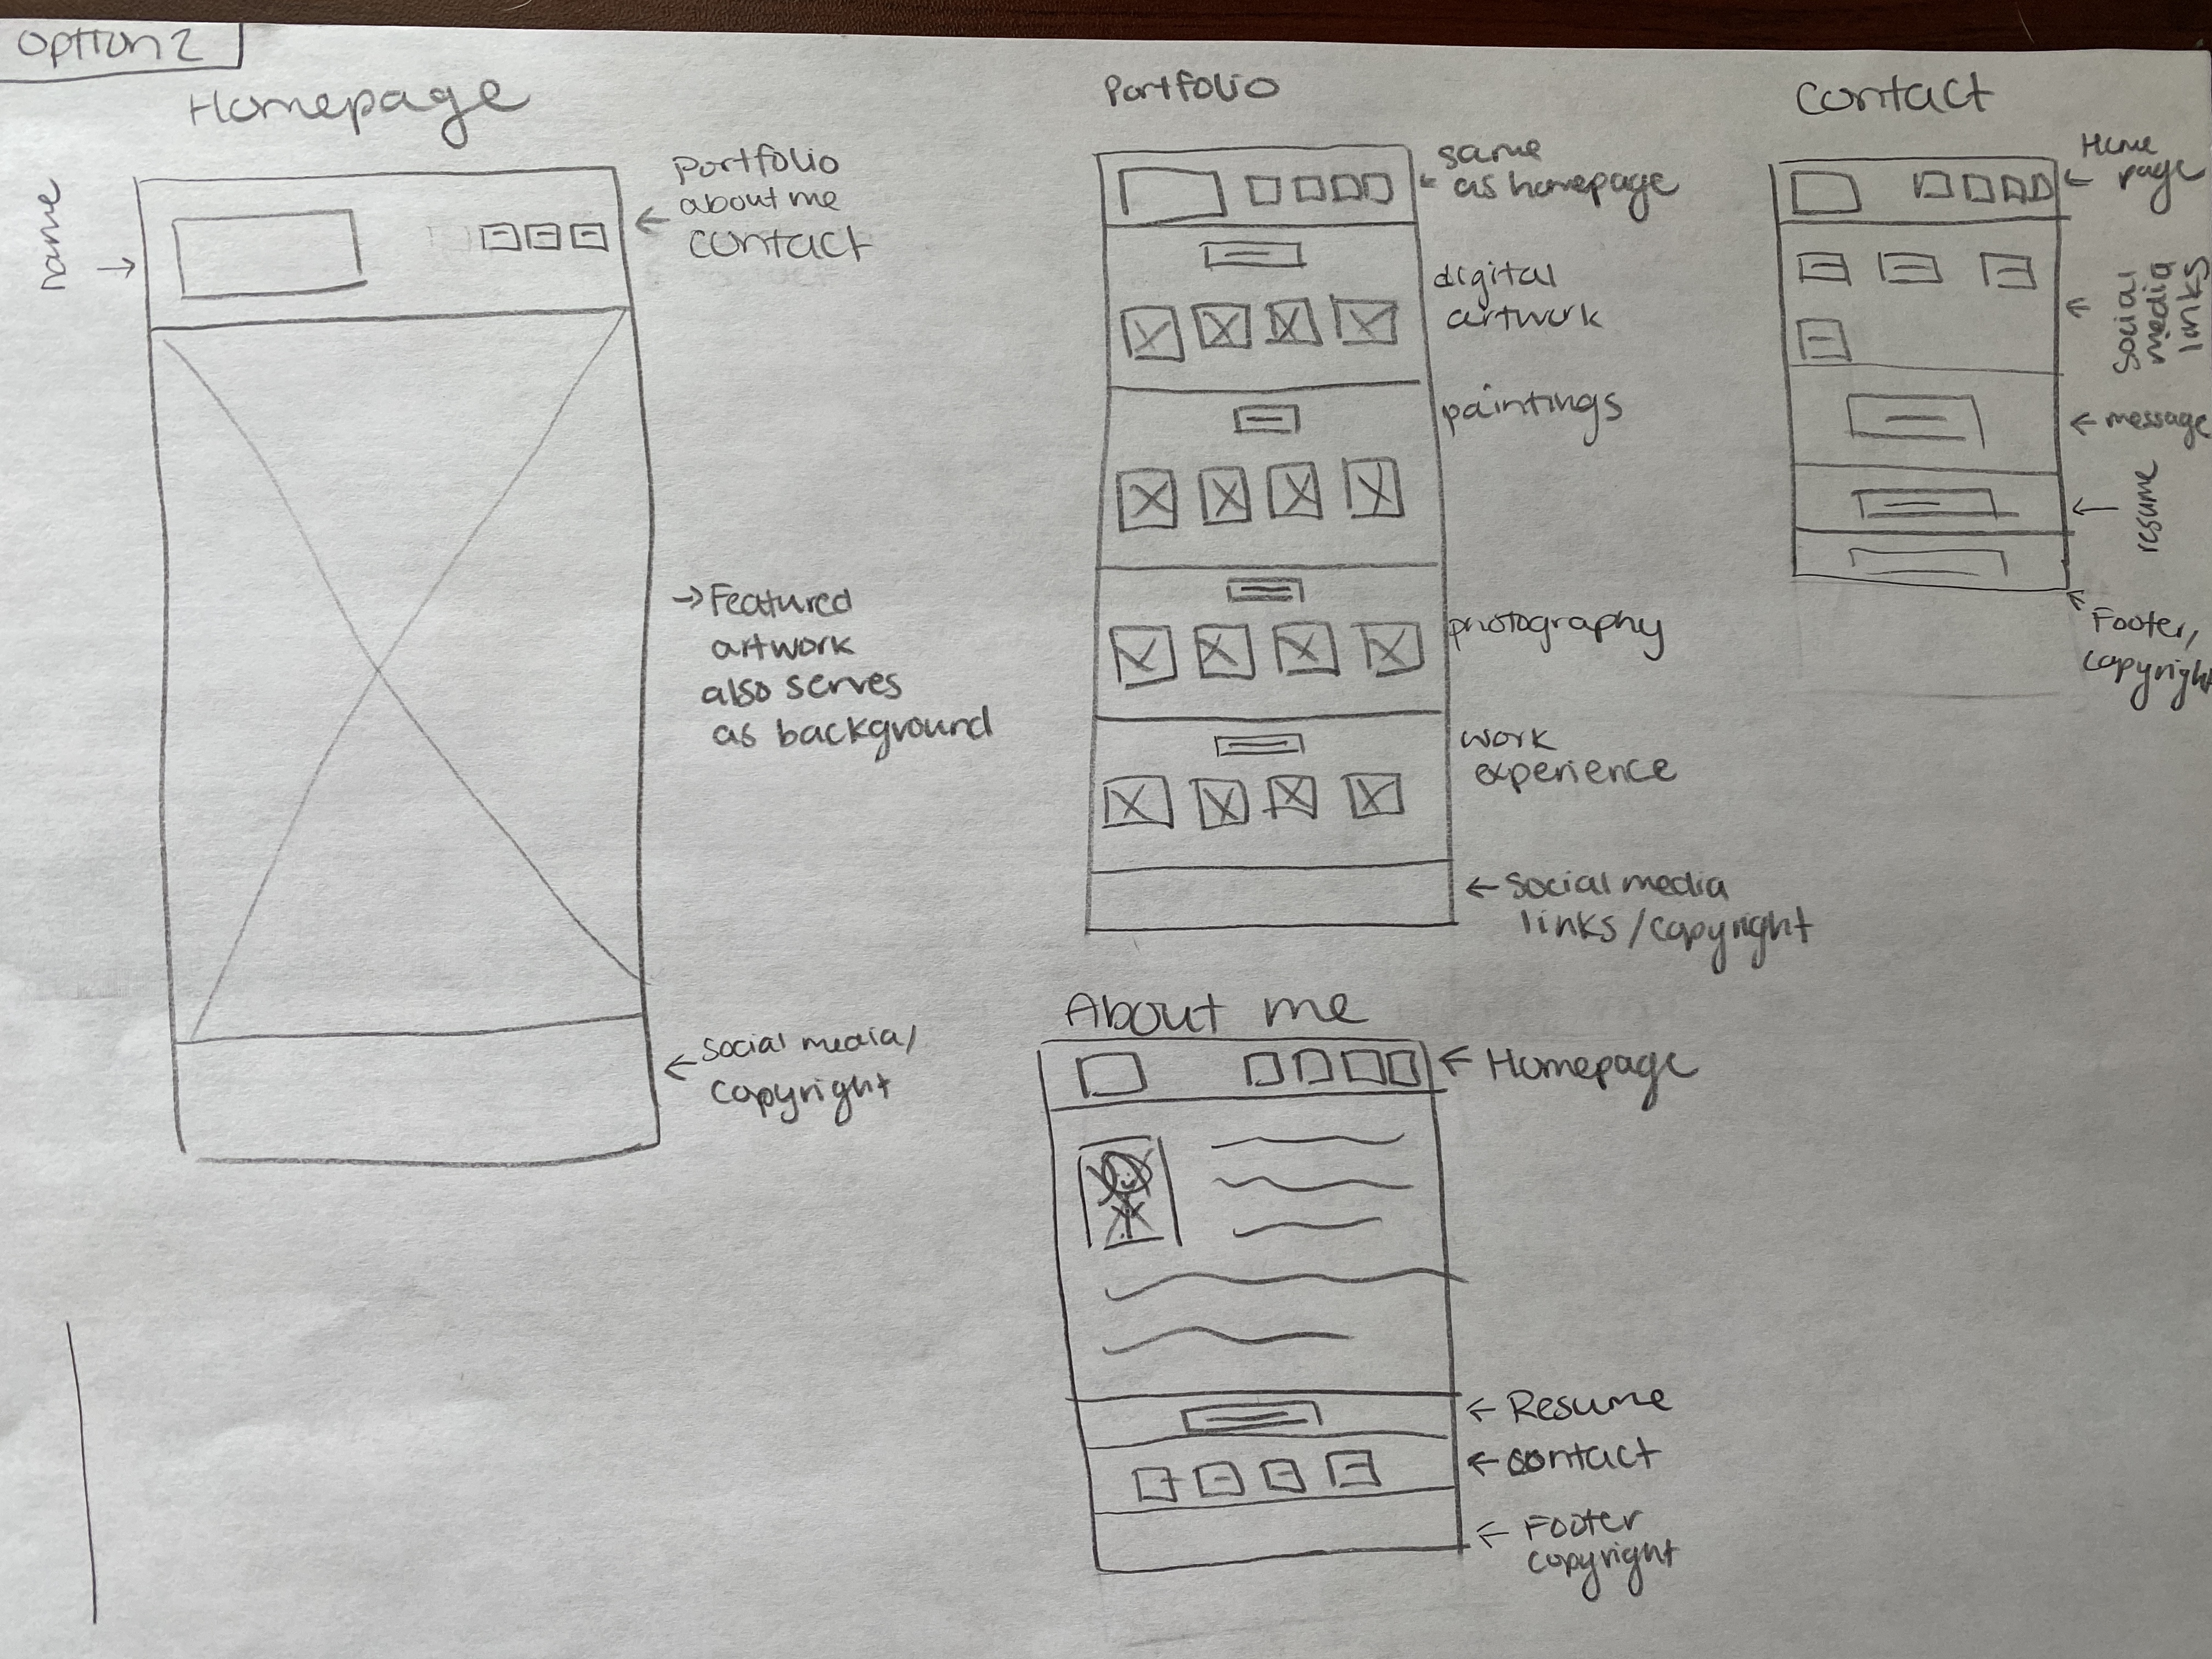 Option 2
Homepage
name
Portfolio
about me
contact
Featured
artwork
also serves
as background
social media/
copyright
Portfolio
same
as homepage
digital
artwork
paintings
photography
work
experience
social media
links/copyright
About me
Homepage
Resume
contact
Footer
copyright
Contact
Home
page
social
media
links
message
resume
Footer,
copyright